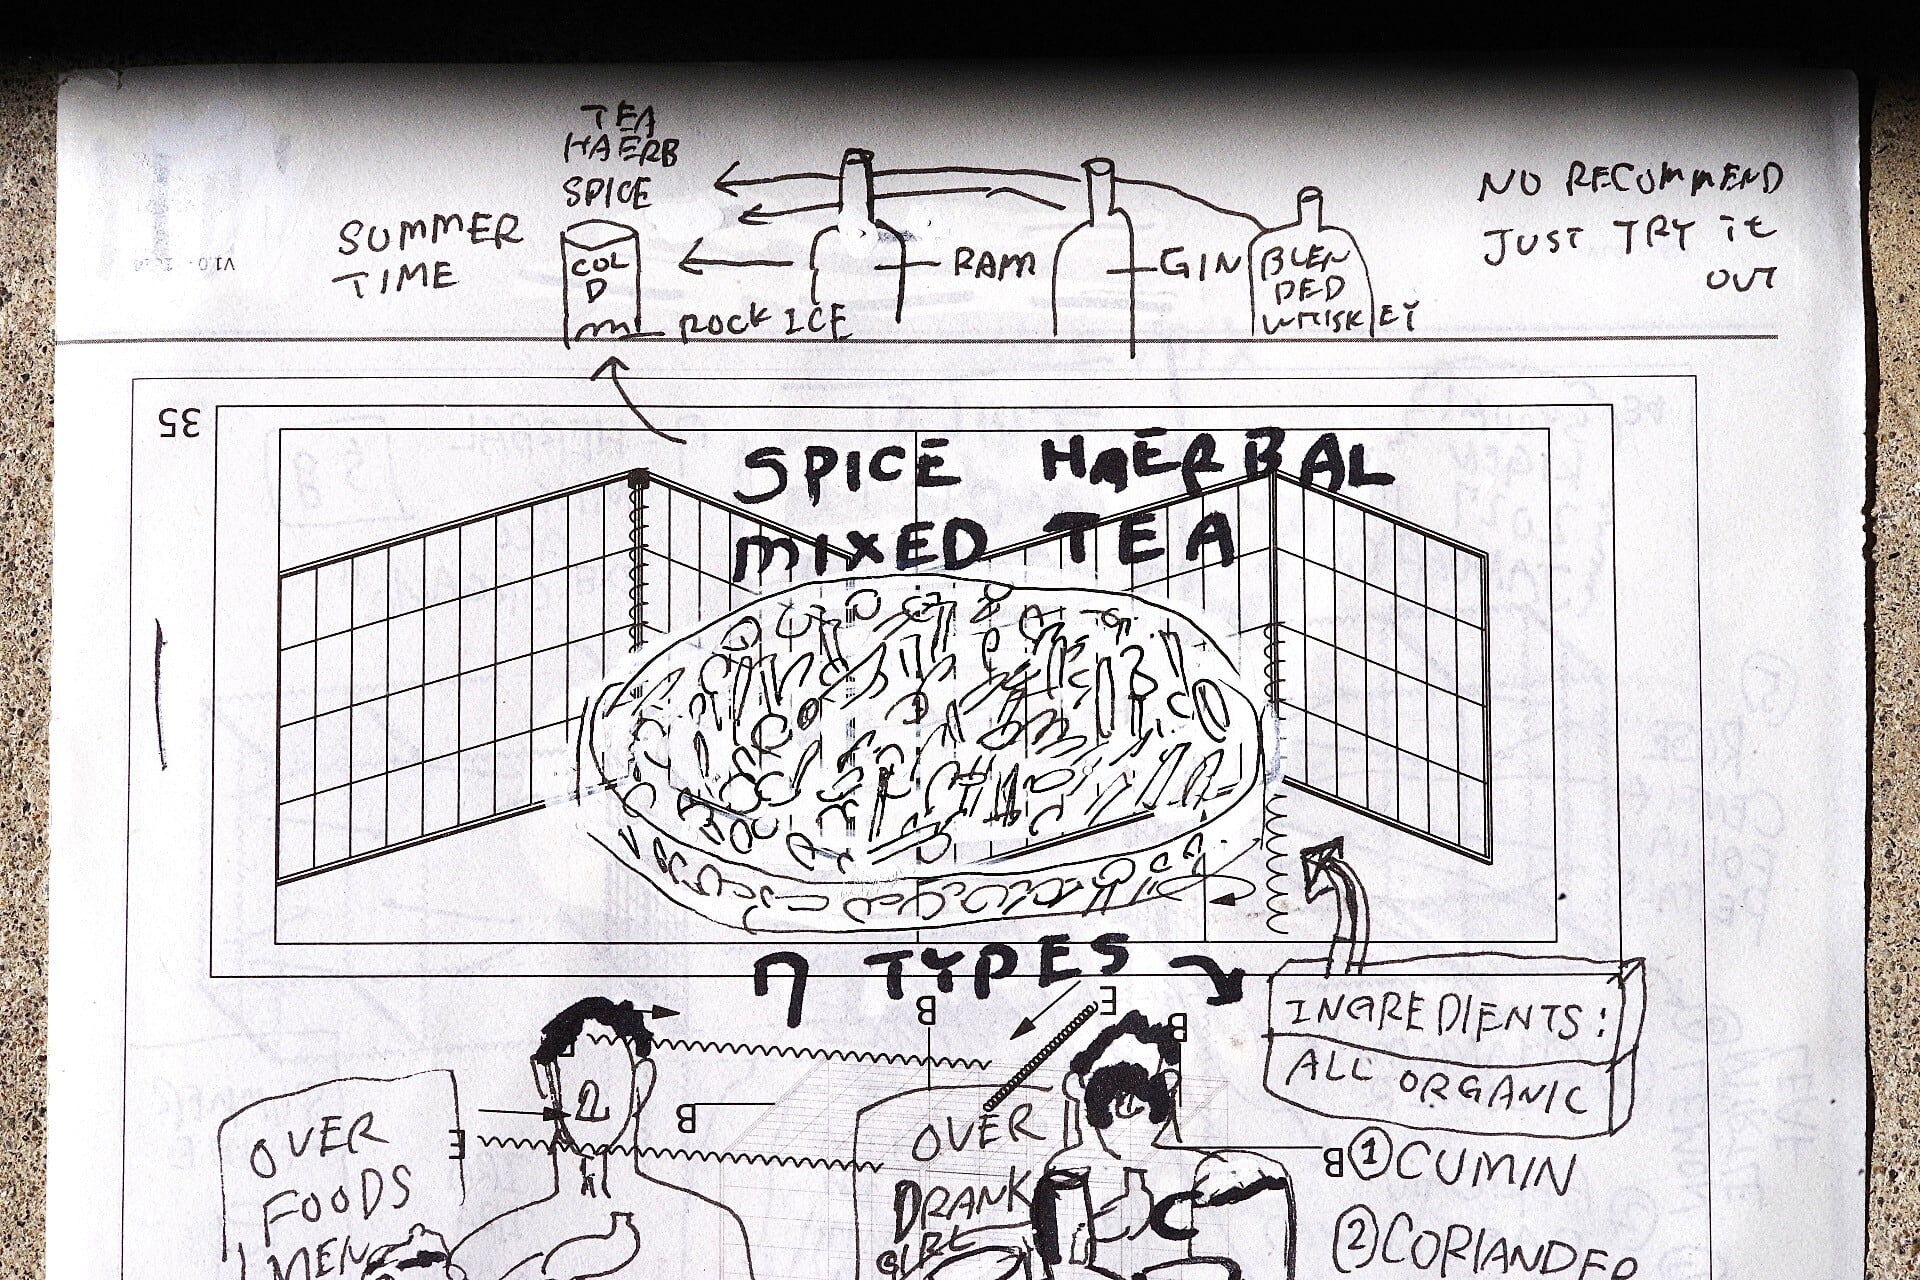 TEA
HAERB
SPICE
SUMMER
TIME
COL
D
ROCK ICE
RAM
GIN
BLEN
DED
WHISKEY
NO RECOMMEND
JUST TRY It
OUT
35
SPICE HAERBAL
MIXED TEA
7 TYPES
INGREDIENTS:
ALL ORGANIC
B
E
B
B
E
B
OVER
FOODS
MEN
OVER
DRANK
GIRL
① CUMIN
② CORIANDER